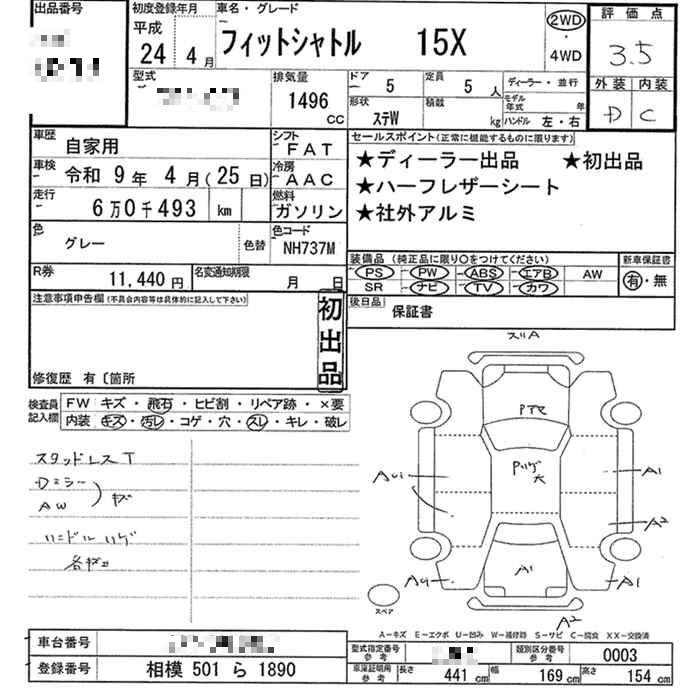 出品番号
初度登録年月
平成
24 4 月
車名・グレード
フィットシャトル 15X
2WD
・
4WD
評価点
3.5
外装 内装
D C
型式
排気量
1496 CC
ドア 5
定員 5 人
形状 ステW
積載 kg
ディーラー・並行
モデル年式 年
ハンドル 左・右
車歴 自家用
シフト FAT
車検 令和 9 年 4 月(25 日)
冷房 AAC
走行 6 万 0 千 493 km
燃料 ガソリン
色 グレー 色替
色コード NH737M
R券 11,440 円
名変通知期限 月 日
セールスポイント(正常に機能するものに限ります)
★ディーラー出品 ★初出品
★ハーフレザーシート
★社外アルミ
装備品(純正品に限り○をつけてください)
PS PW ABS エアB AW
SR ナビ TV カワ
新車保証書
有・無
後日品 保証書
注意事項申告欄(不具合内容等は具体的に記入して下さい)
初出品
修復歴 有〔箇所
検査員記入欄
FW キズ・飛石・ヒビ割・リペア跡・×要
内装 キズ・汚レ・コゲ・穴・スレ・キレ・破レ
スタッドレスT
Dミラー
AW
キズ
ハンドルハゲ
スリA
A1
A2
A1
A1
A2
スペア
A-キズ E-エクボ U-凹み W-補修跡 S-サビ C-腐食 XX-交換済
車台番号
登録番号 相模 501 ら 1890
型式指定番号 参考
類別区分番号 参考 0003
車庫証明用 参考 長さ 441 cm 幅 169 cm 高さ 154 cm